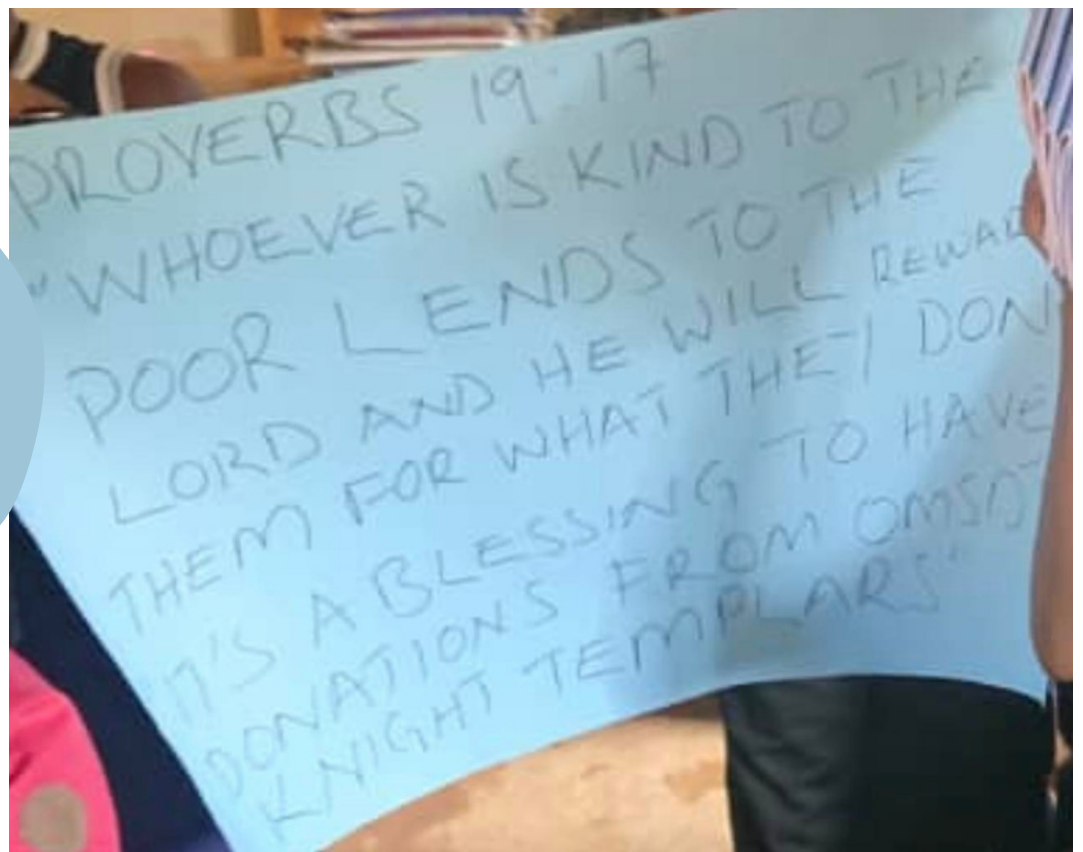 PROVERBS 19:17
"WHOEVER IS KIND TO THE
POOR LENDS TO THE
LORD AND HE WILL REWAR
THEM FOR WHAT THEY DON
IT'S A BLESSING TO HAVE
DONATIONS FROM OMSDT
KNIGHT TEMPLARS"